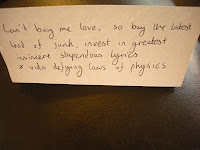 Can't buy me love, so buy the latest
load of junk, invest in greatest
insincere stupendous lyrics
& vids defying laws of physics